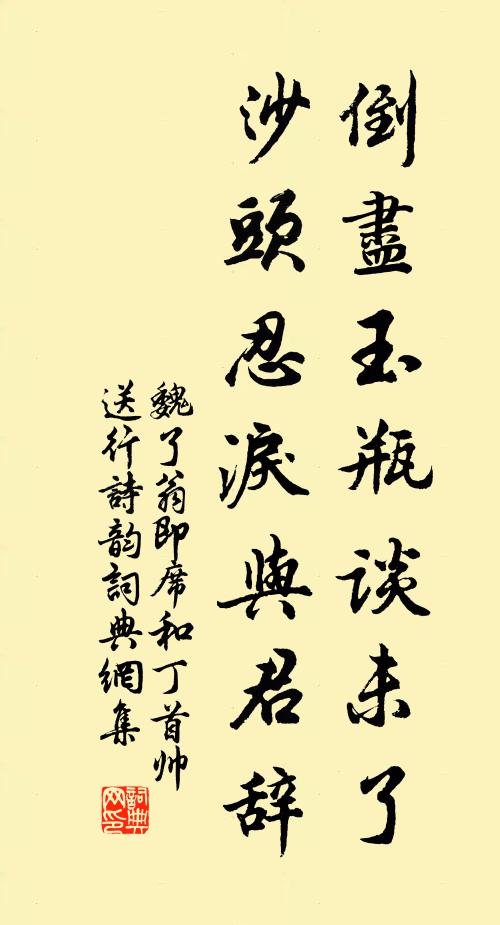 倒盡玉瓶談未了
沙頭忍淚與君辞
魏了翁即席和丁首帅
送行詩韵詞典網集
詞典网印